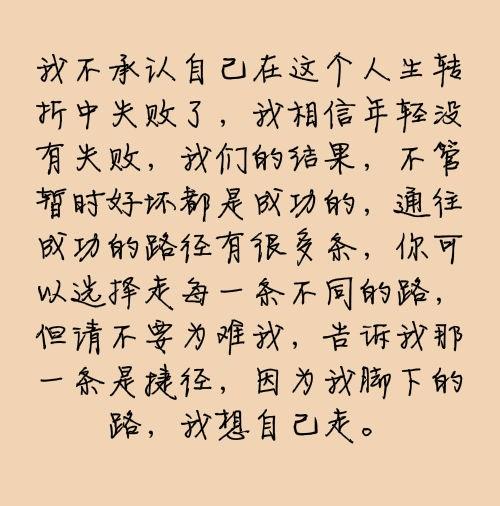 我不承认自己在这个人生转
折中失败了，我相信年轻没
有失败，我们的结果，不管
暂时好坏都是成功的，通往
成功的路径有很多条，你可
以选择走每一条不同的路，
但请不要为难我，告诉我那
一条是捷径，因为我脚下的
路，我想自己走。